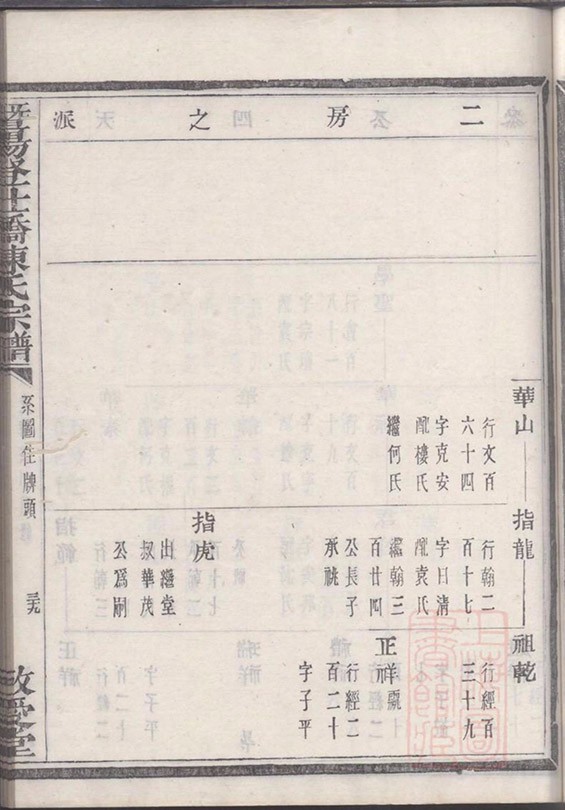 二房之派
華山
行文百
六十四
字克安
配樓氏
繼何氏
指龍
行翰二
百十七
字日清
配袁氏
繼翰三
百廿四
公長子
承祧
指虎
出繼堂
叔華茂
公爲嗣
祖乾
行經百
三十九
正祥
行經二
百二十
字子平
陳氏宗譜
系圖住牌頭
三九
敬愛堂